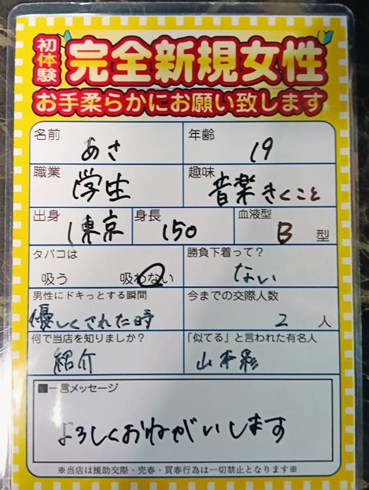 初体験 完全新規女性
お手柔らかにお願い致します
名前 あさ 年齢 19
職業 学生 趣味 音楽きくこと
出身 東京 身長 150 血液型 B 型
タバコは 吸う 吸わない 勝負下着って? ない
男性にドキっとする瞬間 優しくされた時 今までの交際人数 2 人
何で当店を知りましたか? 紹介 「似てる」と言われた有名人 山本彩
■一言メッセージ
よろしくおねがいします
※当店は援助交際・売春・買春行為は一切禁止となります※